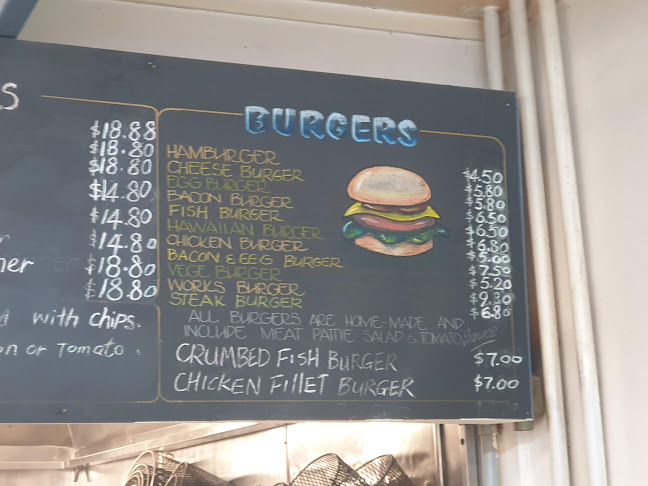 S
$18.88
$18.80
$18.80
$14.80
$14.80
$14.80
ner $18.80
$18.80
with chips.
on or Tomato
BURGERS
HAMBURGER $4.50
CHEESE BURGER $5.80
EGG BURGER $5.80
BACON BURGER $6.50
FISH BURGER $6.50
HAWAIIAN BURGER $6.80
CHICKEN BURGER $5.00
BACON & EGG BURGER $7.50
VEGE BURGER $5.20
WORKS BURGER $9.30
STEAK BURGER $6.80
ALL BURGERS ARE HOME-MADE AND
INCLUDE MEAT PATTIE SALAD & TOMATO Sauce
CRUMBED FISH BURGER $7.00
CHICKEN FILLET BURGER $7.00